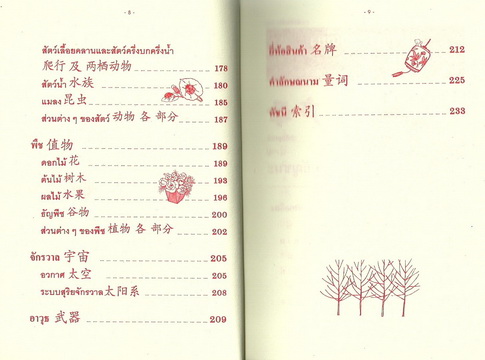 สัตว์เลื้อยคลานและสัตว์ครึ่งบกครึ่งน้ำ
爬行 及 两栖动物 178
สัตว์น้ำ 水族 180
แมลง 昆虫 185
ส่วนต่าง ๆ ของสัตว์ 动物 各 部分 187
พืช 值物 189
ดอกไม้ 花 189
ต้นไม้ 树木 193
ผลไม้ 水果 196
ธัญพืช 谷物 200
ส่วนต่าง ๆ ของพืช 植物 各 部分 202
จักรวาล 宇宙 205
อวกาศ 太空 205
ระบบสุริยจักรวาล 太阳系 208
อาวุธ 武器 209
ยี่ห้อสินค้า 名牌 212
คำลักษณนาม 量词 225
ดัชนี 索引 233